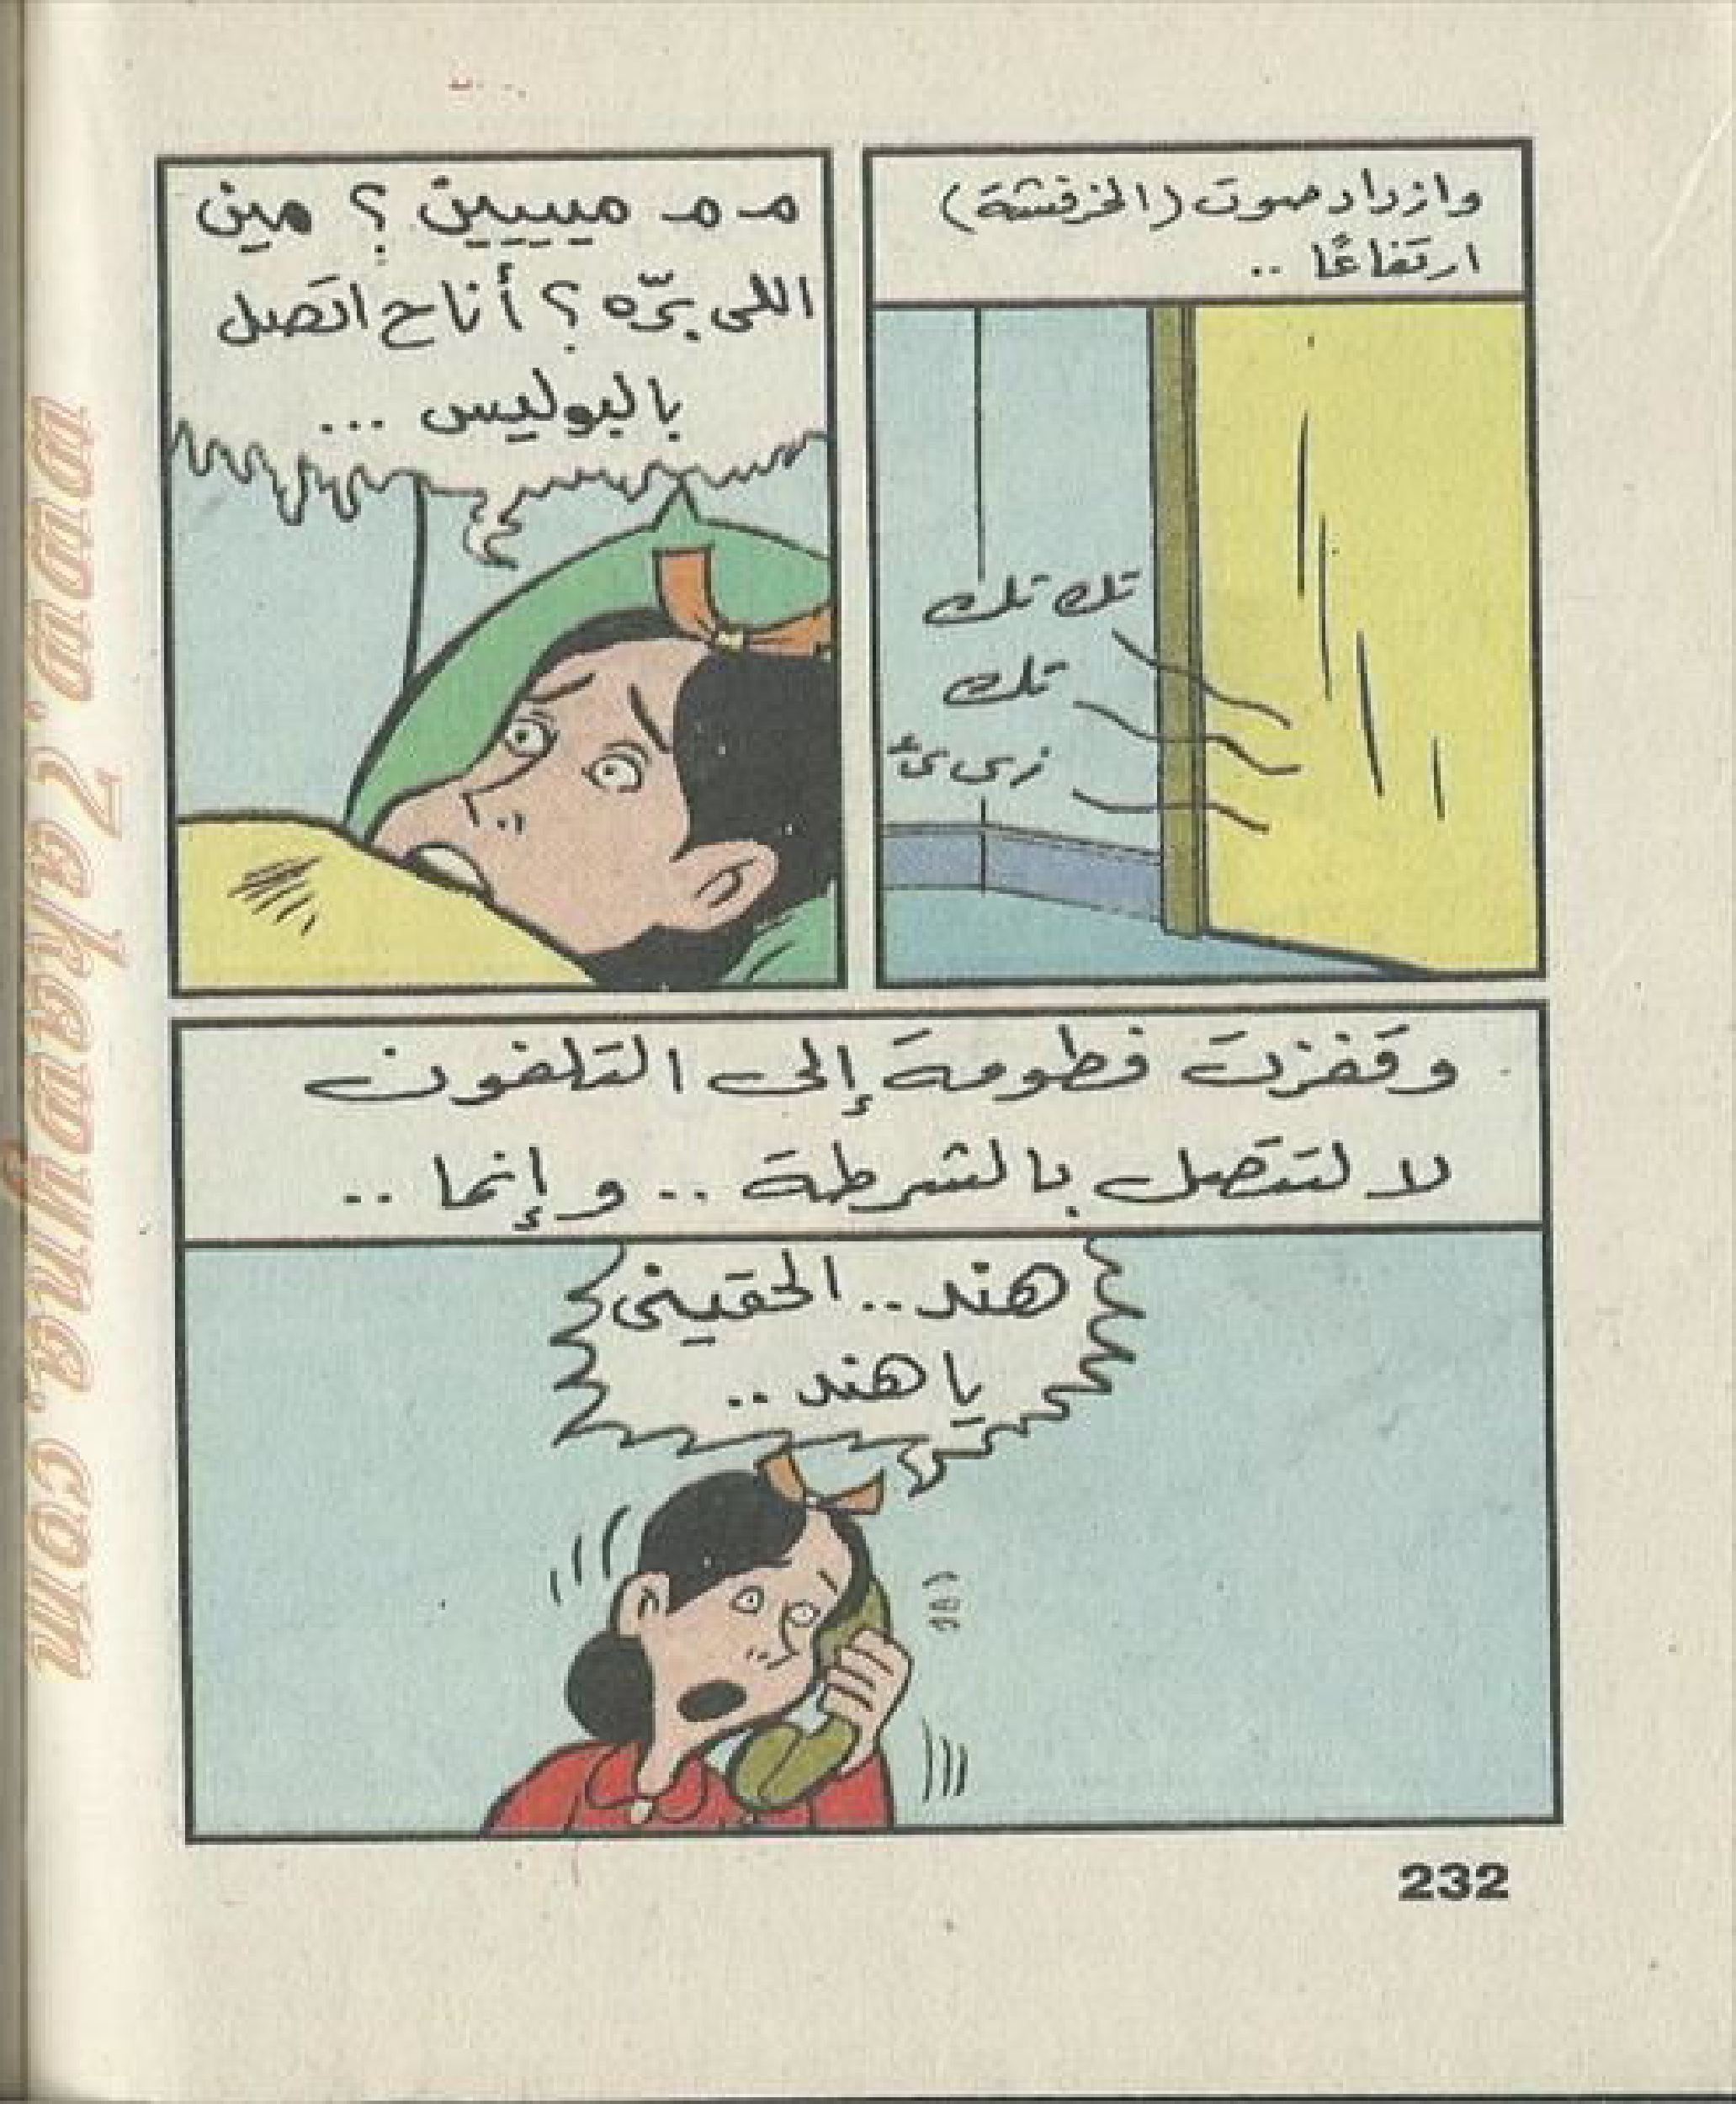 وازداد صوت (الخرفشة)
ارتفاعًا ..
تك تك
تك
زى ئ
م م مييييين ؟ مين
اللى برّه ؟ أنا ح اتصل
بالبوليس ...
وقفزت فطومة إلى التلفون
لا لتتصل بالشرطة .. وإنما ..
هند .. الحقينى
يا هند ..
232
www.7akawyna.com